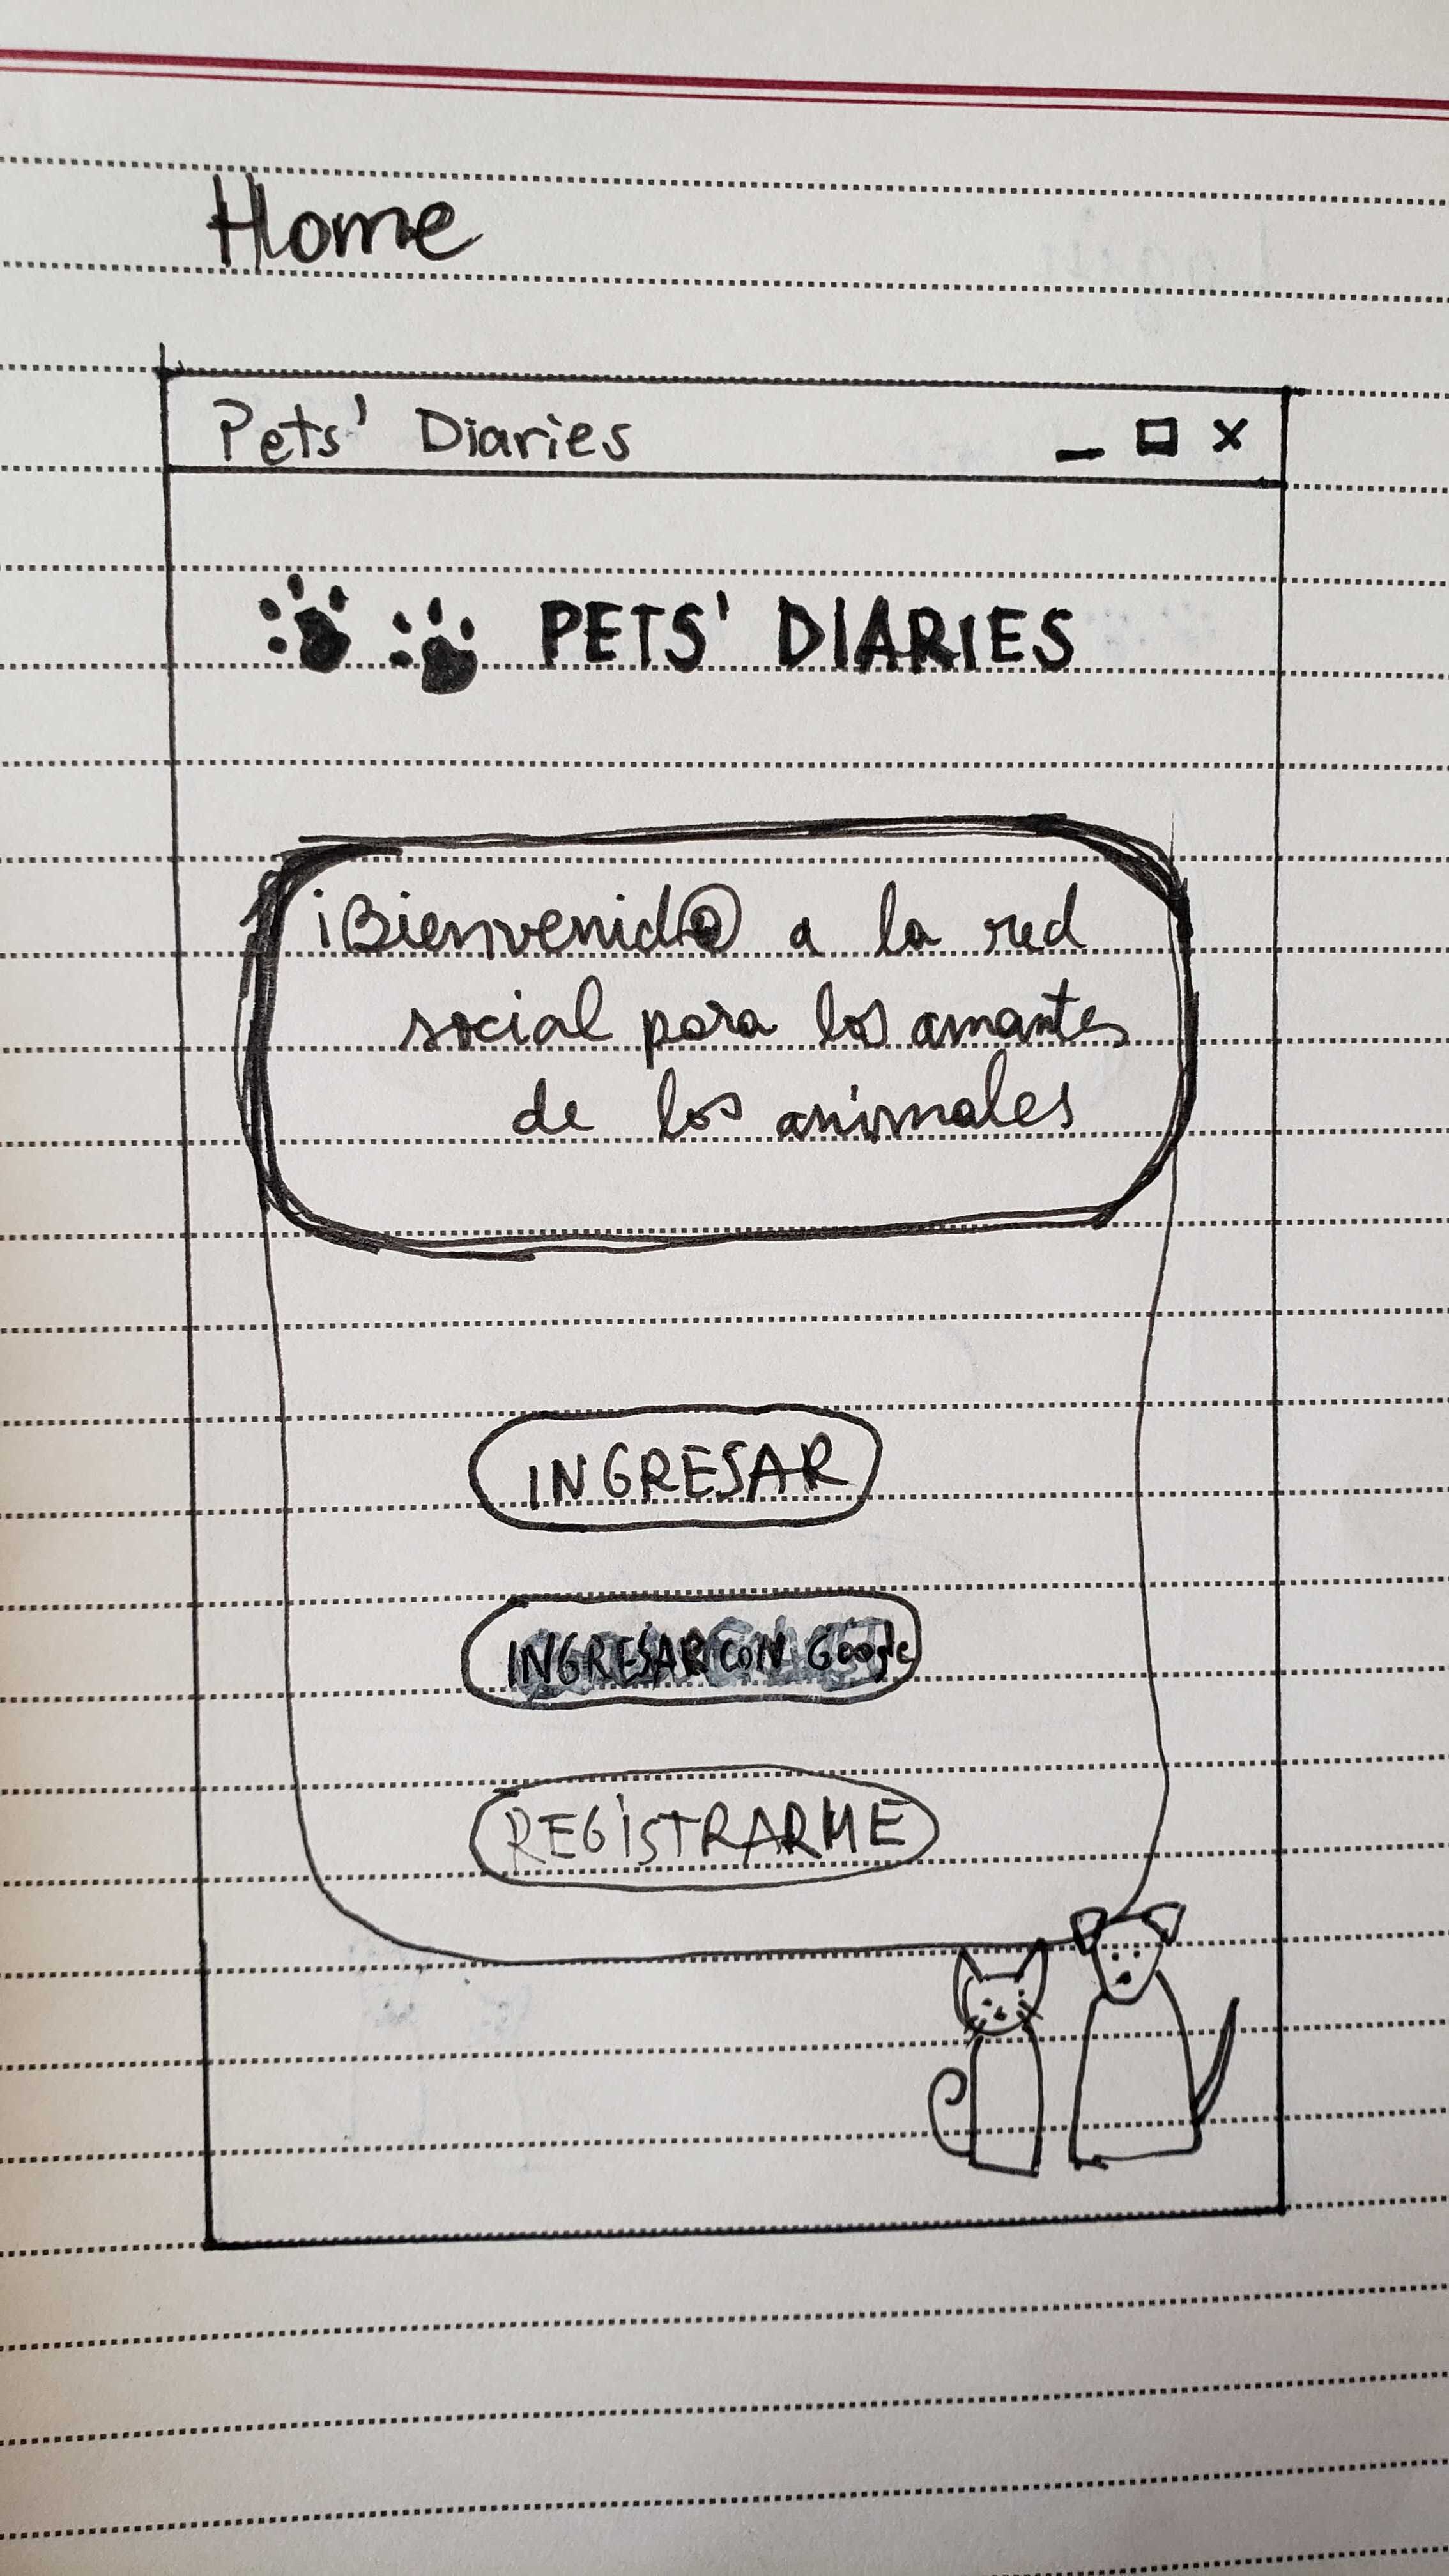 Home
Pets' Diaries
PETS' DIARIES
¡Bienvenid@ a la red
social para los amantes
de los animales
INGRESAR
INGRESAR CON Google
REGISTRARME